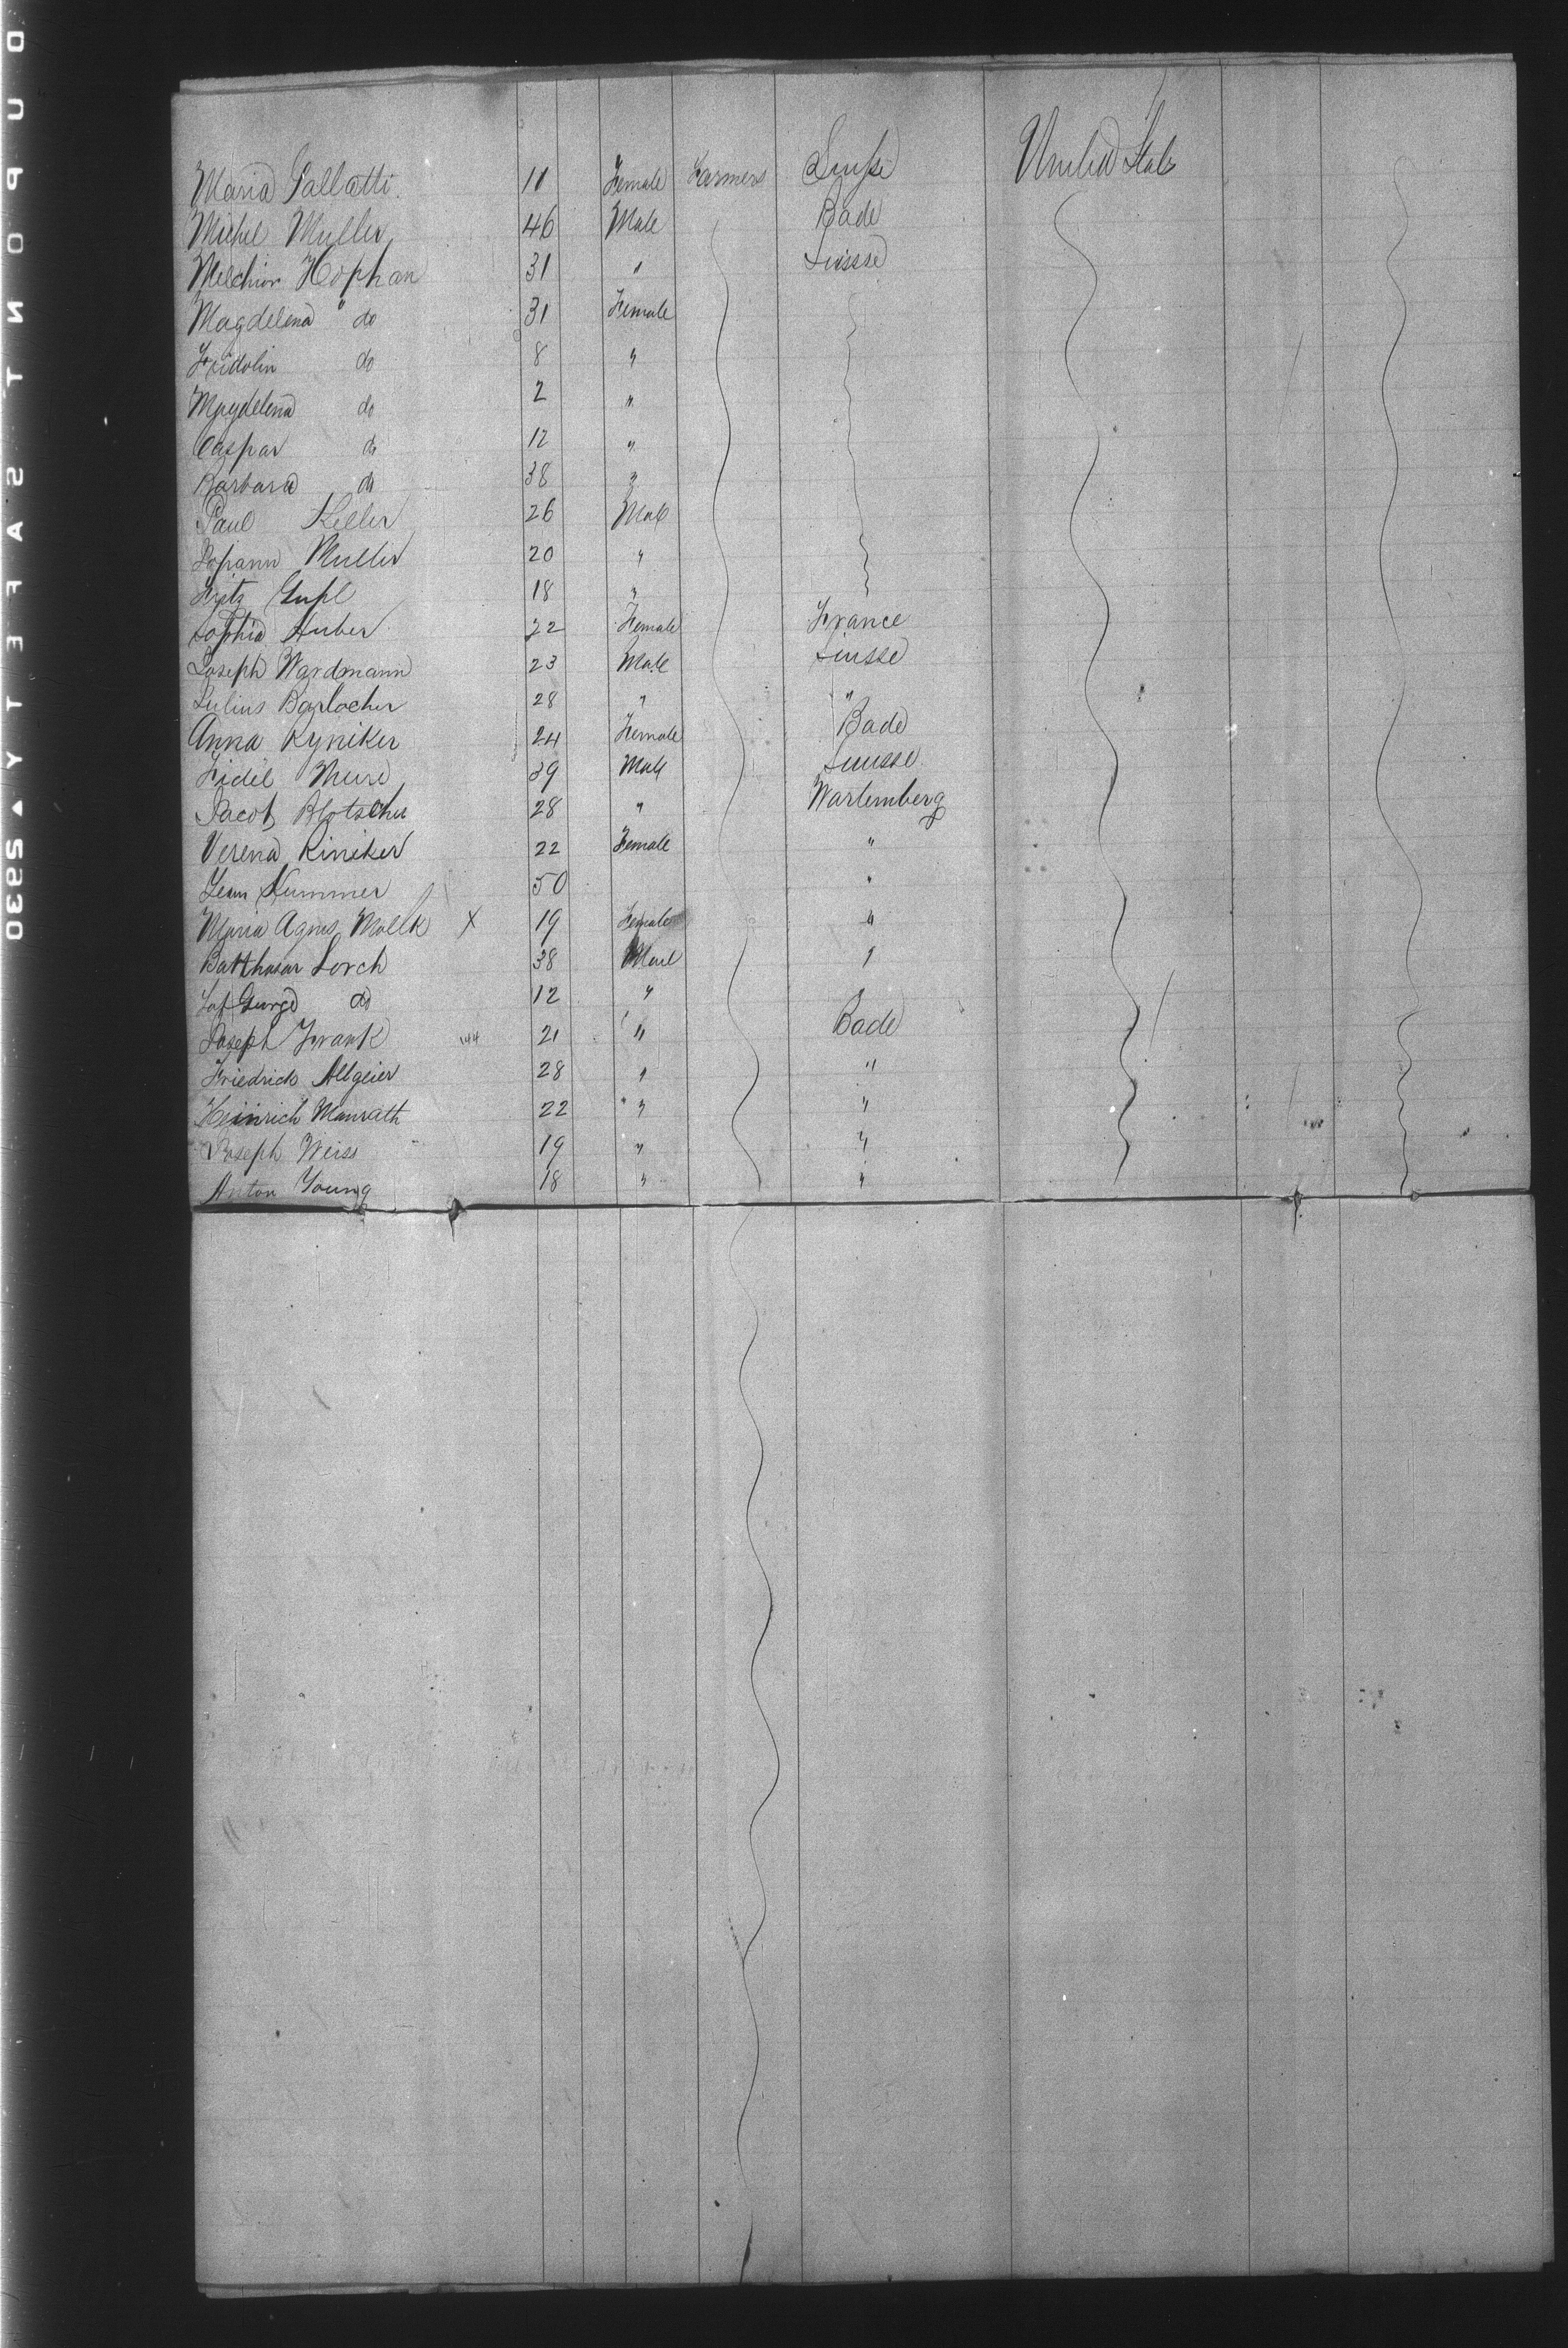 Maria Gallatti. 11 Female Farmers Suisse United Stats
Michel Muller 46 Male Bade
Melchior Hophan 31 " Suisse
Magdelena " do 31 Female
Fridolin do 8 "
Magdelena do 2 "
Caspar do 12 "
Barbara do 38 "
Paul Keller 26 Male
Johann Muller 20 "
Fritz 18 "
Sophia Huber 22 Female France
Joseph Wardmann 23 Male Suisse
Julius Barlocher 28 " "
Anna Ryniker 24 Female Bade
Fidel 39 Male Suusse
Jacob Blotscher 28 " Wartemberg
Verena Riniker 22 Female "
Jean Kummer 50 "
Maria Agnes Mollk X 19 Female "
Balthasar Lorch 38 Male "
George do 12 " "
Joseph Frank 144 21 " Bade
Friedrich Allgeier 28 " "
Heinrich Manrath 22 " "
Joseph Weiss 19 " "
Anton Young 18 " "